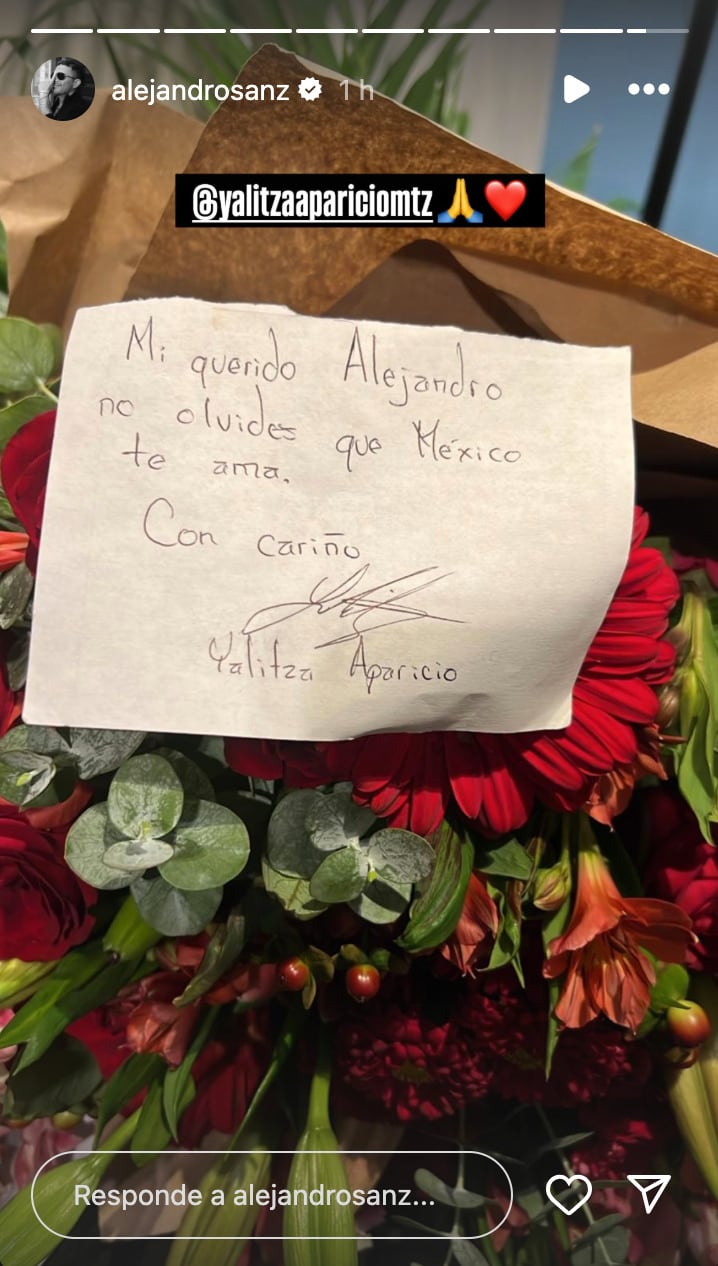 alejandrosanz 1 h
@yalitzaapariciomtz🙏❤️
Mi querido Alejandro
no olvides que México
te ama.
Con cariño
Yalitza Aparicio
Responde a alejandrosanz...